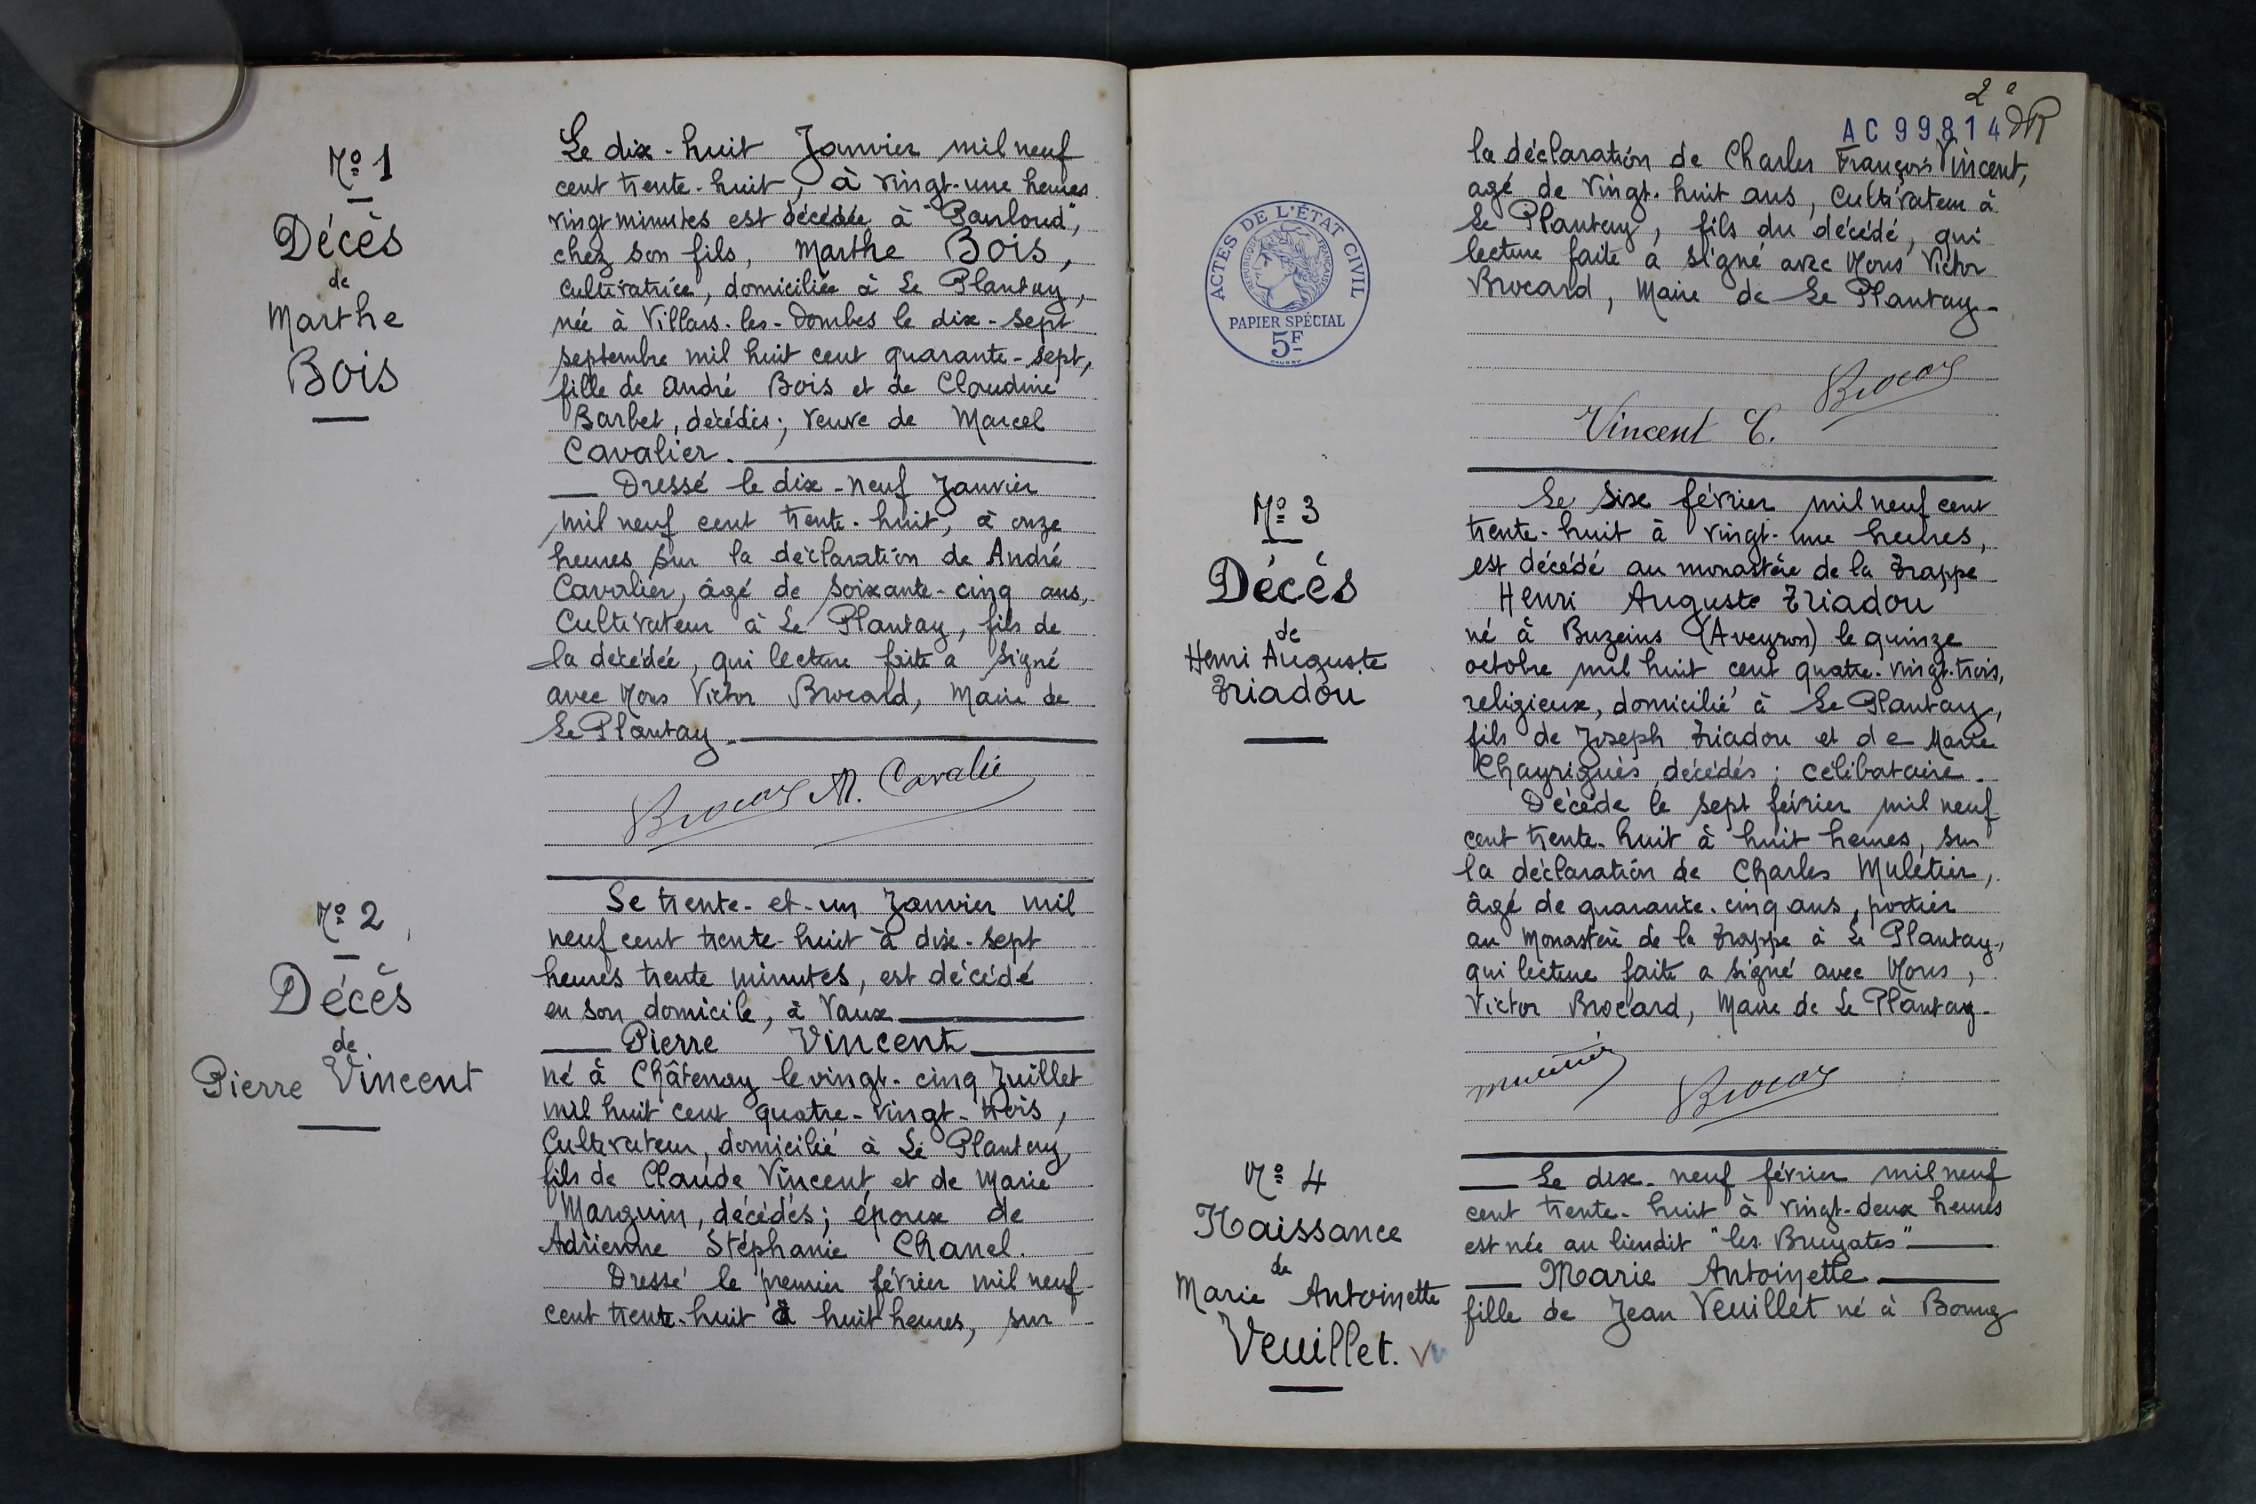 Nº 1
Décès
de
Marthe
Bois
Le dix-huit Janvier mil neuf
cent trente-huit, à vingt-une heures
vingt minutes est décédée à "Parloud",
chez son fils, Marthe Bois,
cultivatrice, domiciliée à Le Plantay,
née à Villars-les-Dombes le dix-sept
septembre mil huit cent quarante-sept,
fille de André Bois et de Claudine
Barbet, décédés; veuve de Marcel
Cavalier.
Dressé le dix-neuf Janvier
mil neuf cent trente-huit, à onze
heures sur la déclaration de André
Cavalier, âgé de soixante-cinq ans,
Cultivateur à Le Plantay, fils de
la décédée, qui lecture faite a signé
avec Nous Victor Brocard, Maire de
Le Plantay.
Brocard A. Cavalié
Nº 2
Décès
de
Pierre Vincent
Le trente-et-un Janvier mil
neuf cent trente-huit à dix-sept
heures trente minutes, est décédé
en son domicile, à Vaux
Pierre Vincent
né à Châtenay le vingt-cinq Juillet
mil huit cent quatre-vingt-trois,
Cultivateur, domicilié à Le Plantay,
fils de Claude Vincent et de Marie
Manguin, décédés; époux de
Adrienne Stéphanie Chanel.
Dressé le premier février mil neuf
cent trente-huit à huit heures, sur
2e
AC 99814
la déclaration de Charles François Vincent,
agé de vingt-huit ans, Cultivateur à
Le Plantay, fils du décédé, qui
lecture faite a signé avec Nous Victor
Brocard, Maire de Le Plantay.
ACTES DE L'ÉTAT CIVIL
RÉPUBLIQUE FRANÇAISE
PAPIER SPÉCIAL
5F
Brocard
Vincent C.
Nº 3
Décès
de
Henri Auguste
Triadou
Le six février mil neuf cent
trente-huit à vingt-une heures,
est décédé au monastère de la Trappe
Henri Auguste Triadou
né à Buzeins (Aveyron) le quinze
octobre mil huit cent quatre-vingt-trois,
religieux, domicilié à Le Plantay,
fils de Joseph Triadou et de Marie
Chayriguès décédés; célibataire.
Décédé le sept février mil neuf
cent trente-huit à huit heures, sur
la déclaration de Charles Muletier,
âgé de quarante-cinq ans, portier
au Monastère de la Trappe à Le Plantay,
qui lecture faite a signé avec Nous,
Victor Brocard, Maire de Le Plantay.
Muletier
Brocard
Nº 4
Naissance
de
Marie Antoinette
Veuillet.
Le dix-neuf février mil neuf
cent trente-huit à vingt-deux heures
est née au lieudit "les Bruyates"
Marie Antoinette
fille de Jean Veuillet né à Bourg